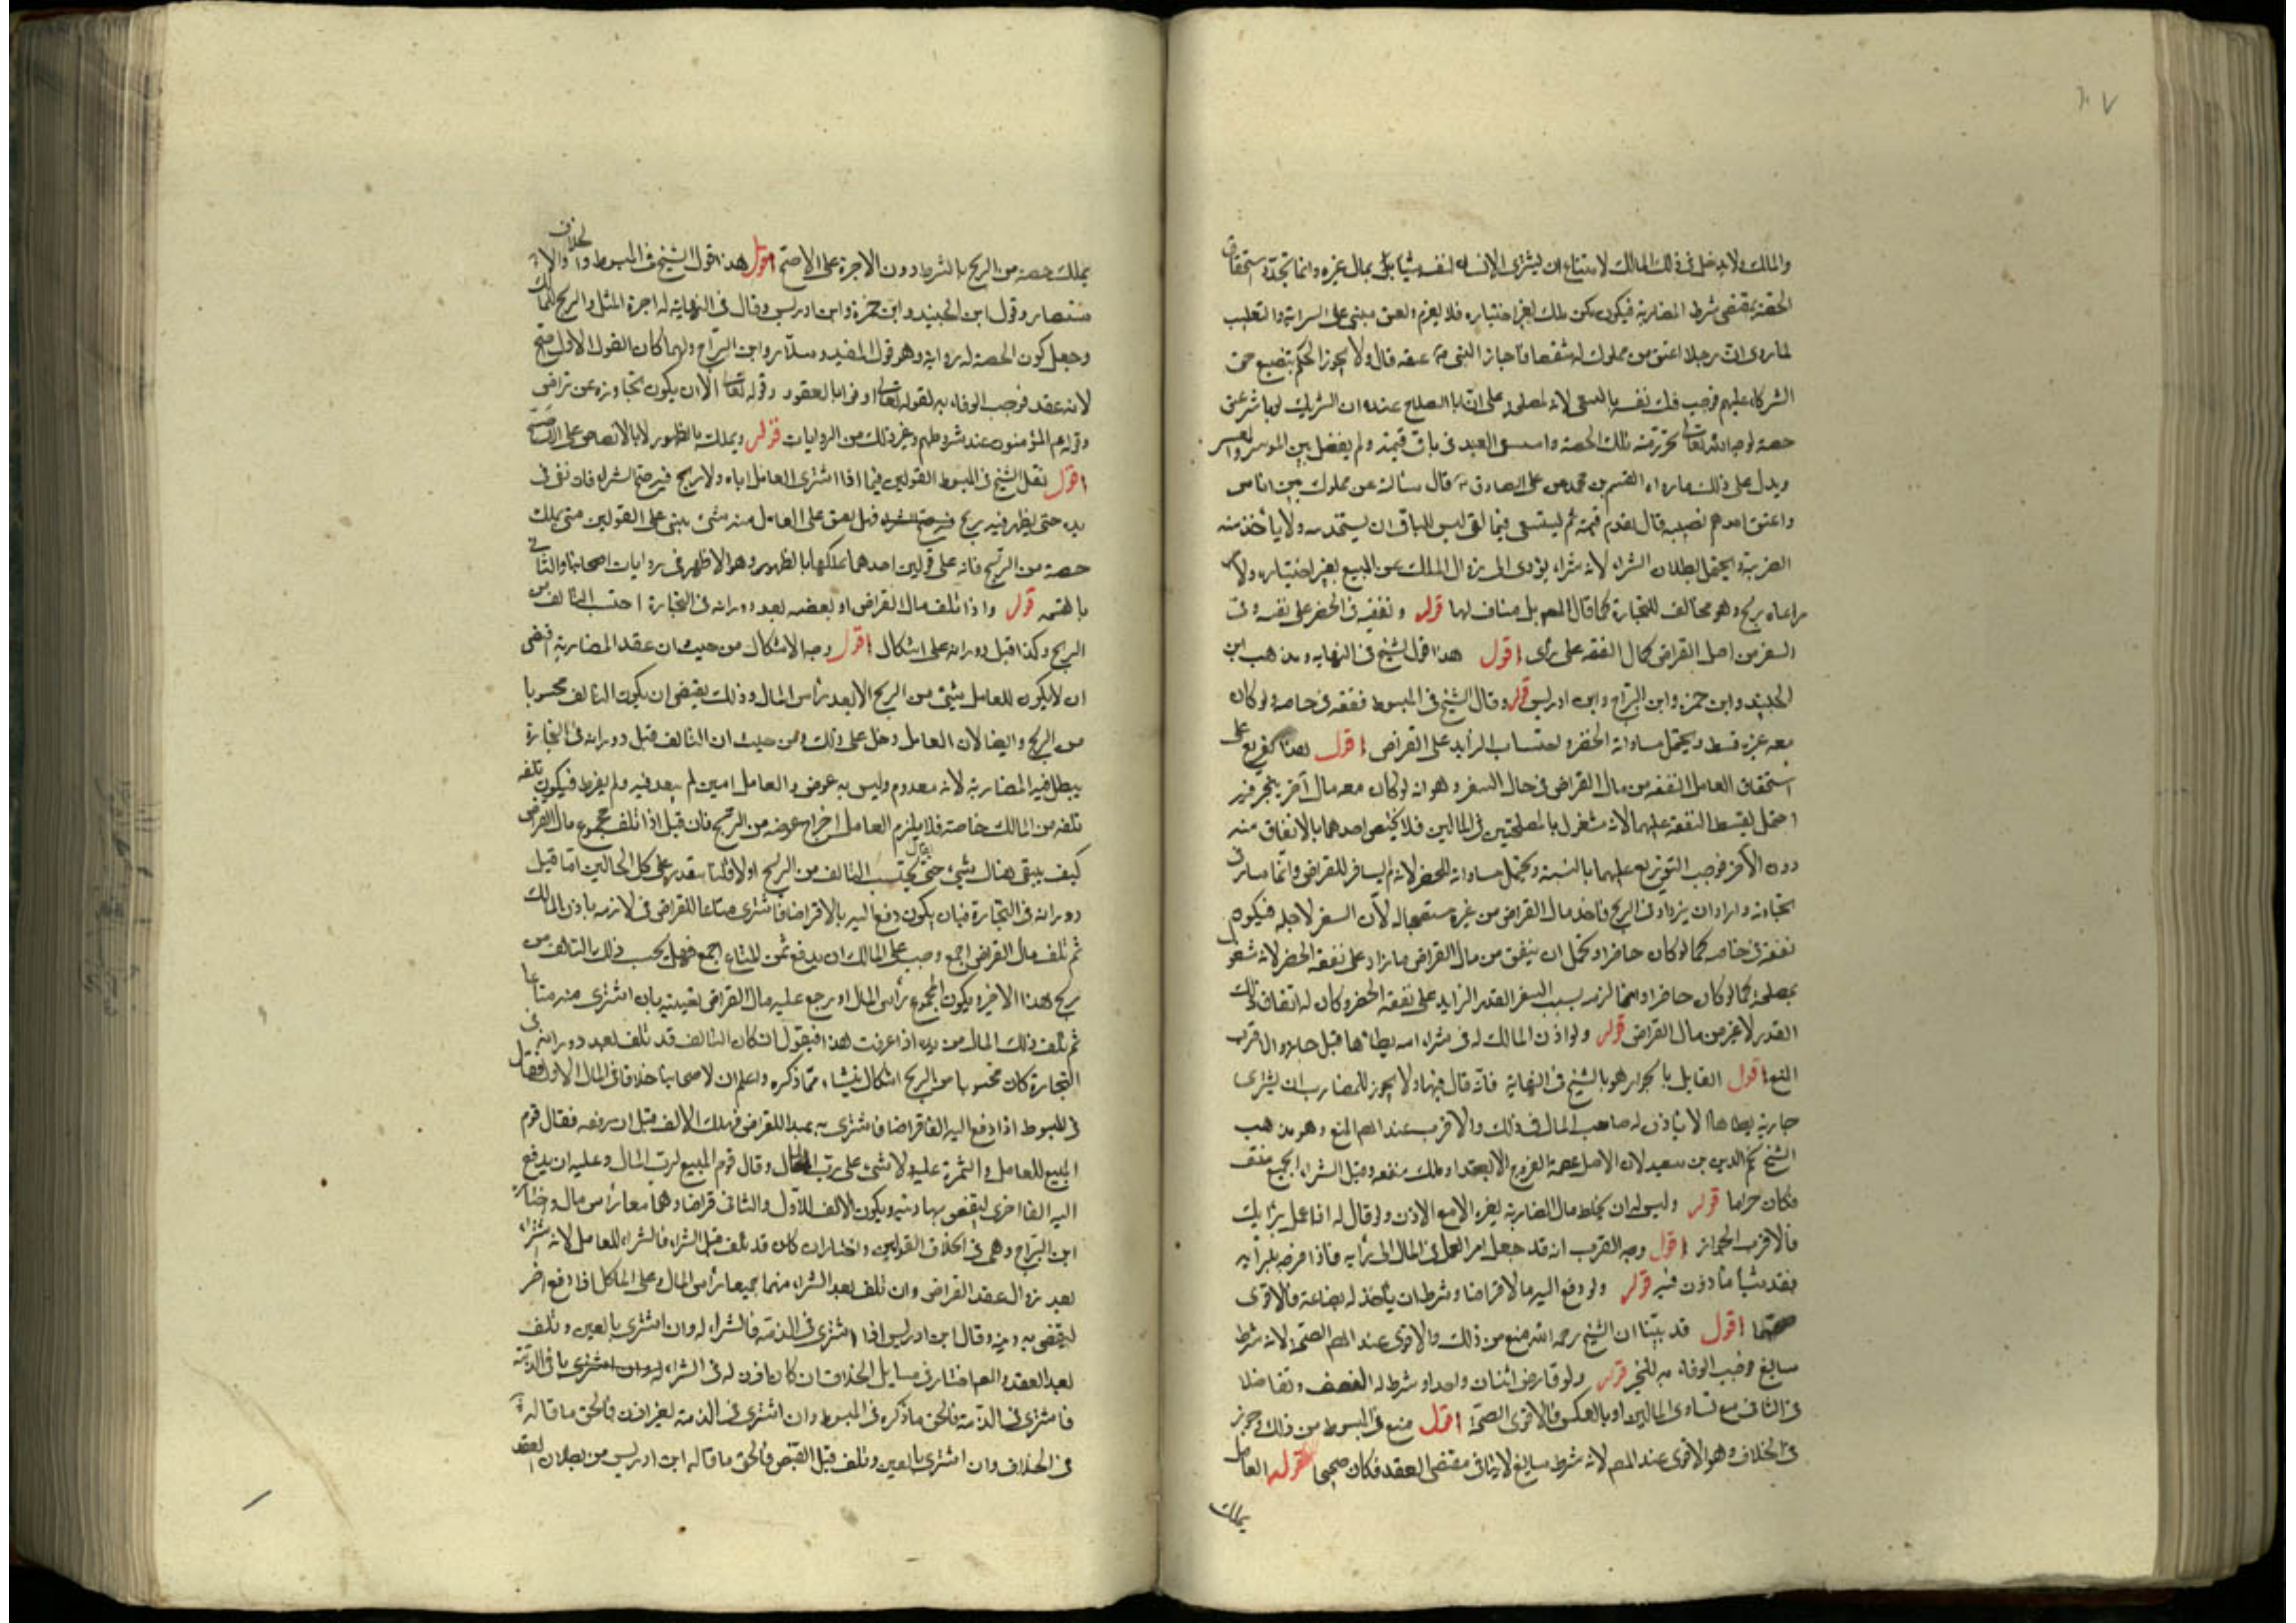 ٢٠٧
والمالك ولا يدخل في ذلك المالك لامتناع ان يشترى الانسان لنفسه شيئا بمال غيره وانما تجدد استحقاق
الحصة بمقتضى شرط المضاربة فيكون كمن ملك بغير اختياره فلا يغرم والعتق مبنى على السراية والتغليب
لما روى ان رجلا اعتق من مملوك له شقصا فاجاز النبى عتقه قال ولا يجوز الحكم بتضييع حق
الشركاء عليهم فوجب فك نفسه بالسعى لانه لمصلحته على ان ابا الصلاح عنده ان الشريك لو باشر عتق
حصته لوجه الله تعالى تحرر منه تلك الحصة واستسعى العبد فى باقى قيمته ولم يفصل بين الموسر والمعسر
ويدل على ذلك ما رواه القسم بن محمد عن على الصادق ع قال سالته عن مملوك بين اناس
واعتق احدهم نصيبه قال يقوم قيمة ثم يستسعى فيما بقى ليس للباقى ان يستخدمه ولا يأخذ منه
الضريبة ويحتمل بطلان الشراء لانه شراء يؤدى الى زوال الملك عن المبيع بغير اختياره ولا
مراعاه ربح وهو مخالف للتجارة كما قال المص بل مناف لها قوله ونفقته فى الحضر على نفسه وفى
السفر من اصل القراض كمال النفقه على رأى اقول هذا قول الشيخ فى النهايه ومذهب ابن
الجنيد وابن حمزه وابن البراج وابن ادريس قوله وقال الشيخ فى المبسوط نفقته فى خاصه ولو كان
معه غيره قسط ويحتمل مساواة الحضر واحتساب الزايد على القراض اقول هذا تفريع على
استحقاق العامل النفقه من مال القراض فى حال السفر وهو انه لو كان معه مال آخر يتجر فيه
احتمل تقسيط النفقة عليهما لانه شغل بالمصلحتين فى المالين فلا يختص احدهما بالانفاق منه
دون الآخر فوجب التوزيع عليهما بالنسبة ويحتمل مساواته للحضر لانه لم يسافر للقراض وانما سافر فى
تجارته واراد ان يزداد فى الربح فاخذ مال القراض من غيره مستعجاله لان السفر لاجله فيكون
نفقته فى خاصه كما لو كان حاضرا ويحتمل ان ينفق من مال القراض ما زاد على نفقه الحضر لانه شغل
بمصلحة كما لو كان حاضرا وانما لزمه بسبب السفر القدر الزايد على نفقه الحضر وكان له انفاق ذلك
القدر لا غير من مال القراض قوله ولو اذن المالك له فى شراء امة يطأها قيل جاز والاقرب
المنع اقول القايل بالجواز هو الشيخ فى النهاية فانه قال فيها ولا يجوز للمضارب ان يشترى
جارية يطاها الا باذن له صاحب المال فى ذلك والاقرب عند المص المنع وهو مذهب
الشيخ نجم الدين بن سعيد لان الاصل عصمة الفروج الا بعقد او ملك منفعه وقبل الشراء الجميع منتف
فكان حراما قوله وليس له ان يخلط مال المضاربة بغيره الا مع الاذن ولو قال له اعمل برأيك
فالاقرب الجواز اقول وجه القرب انه قد جعل امر العمل فى المال الى رأيه فاذا مزجه برأيه
فقد شيأ مأذون فيه قوله ولو دفع اليه مالا قراضا وشرط ان يأخذ له بضاعة فالاقوى
صحتهما اقول قد بينا ان الشيخ رحمه الله منع من ذلك والاقوى عند المص الصحة لانه شرط
سايغ فوجب الوفاء به للخبر قوله ولو قارض اثنان واحدا وشرط له النصف وتفاضلا
فى الثانى مع تساوى المالين او بالعكس فالاقوى الصحة اقول منع فى المبسوط من ذلك وجوز
فى الخلاف وهو الاقوى عند المص لانه شرط سايغ لا ينافى مقتضى العقد فكان صحيحا قوله العامل
يملك
يملك حصته من الربح بالشرط دون الاجرة على الاصح اقول هذا قول الشيخ فى المبسوط والخلاف والا
ستبصار وقول ابن الجنيد وابن حمزة وابن ادريس وقال فى النهاية له اجرة المثل والربح للمالك
وجعل كون الحصة له رواية وهو قول المفيد وسلار وابن البراج وانما كان القول الاول اصح
لانه عقد فوجب الوفاء به لقوله تعالى اوفوا بالعقود وقوله تعالى الا ان يكون تجارة عن تراض
وقوله ع المؤمنون عند شروطهم وغير ذلك من الروايات قوله ويملك بالظهور لا بالانضاض على
اقول نقل الشيخ فى المبسوط القولين فيما اذا اشترى العامل اباه ولا ربح فيه صح الشراء فان بقى فى
يده حتى يظهر فيه ربح فهل يعتق على العامل منه شئ يبنى على القولين متى يملك
حصته من الربح فانه على قولين احدهما يملكها بالظهور وهو الاظهر فى روايات اصحابنا والثانى
بالقسمة قوله واذا تلف مال القراض او بعضه بعد دورانه فى التجارة احتسب التالف من
الربح وكذا قبل دورانه على اشكال اقول وجه الاشكال من حيث ان عقد المضاربة اقتضى
ان لا يكون للعامل شئ من الربح الا بعد رأس المال وذلك يقتضى ان يكون التالف محسوبا
من الربح وايضا لان العامل دخل على ذلك ومن حيث ان التالف قبل دورانه فى التجارة
يبطل فيه المضاربة لانه معدوم وليس به عوض والعامل امين لم يتعد فيه ولم يفرط فيكون تلفه
تلفه من المالك خاصة فلا يلزم العامل اخراج عوضه من الربح فان قيل اذا تلف مجموع مال القراض
كيف يبقى هناك شئ حتى يقال يحتسب التالف من الربح اولا قلنا يتقدر على كل الحالين اما قبل
دورانه فى التجارة فبان يكون دفع اليه بالاقراضا فاشترى متاعا للقراض فى لازمه باذن المالك
ثم تلف مال القراض اجمع وجب على المالك ان يدفع ثمن المتاع اجمع فهل يحسب ذلك التالف من
ربح هذا الاخير ويكون المجموع رأس المال او يرجع عليه مال القراض بعينه بان اشترى منه متاعا
ثم تلف ذلك المال من يده اذا عرفت هذا فيقول ان كان التالف قد تلف بعد دورانه فى
التجارة كان محسوبا من الربح اشكال ينشاء مما ذكره واعلم ان لاصحابنا خلافا فى المال الاول فقال
فى المبسوط اذا دفع اليه الفا قراضا فاشترى به عبدا للقراض فهلك الالف قبل ان يدفعه فقال قوم
المبيع للعامل والثمن عليه ولا شئ على رب المال وقال قوم المبيع لرب المال وعليه ان يدفع
اليه الفا اخرى ليقضى بها دينه ويكون الالف الاول والثانى قراضا وهما معا رأس مال واختاره
ابن البراج وحكى فى الخلاف القولين واختار ان كان قد تلف قبل الشراء فالشراء للعامل لانه اشتراه
بعد زوال عقد القراض وان تلف بعد الشراء منهما جميعا رأس المال وعلى المالك اذا دفع اخر
ليقضى به دينه وقال ابن ادريس اذا اشترى فى الذمة فالشراء له وان اشترى بالعين وتلف
بعد العقد والمص اختار فى مسايل الخلاف ان كان اذن له فى الشراء فى الذمة
فاشترى فى الذمة فالحق ما ذكره فى المبسوط وان اشترى فى الذمة بغير اذن فالحق ما قاله
فى الخلاف وان اشترى بالعين وتلف قبل القبض فالحق ما قاله ابن ادريس من بطلان العقد